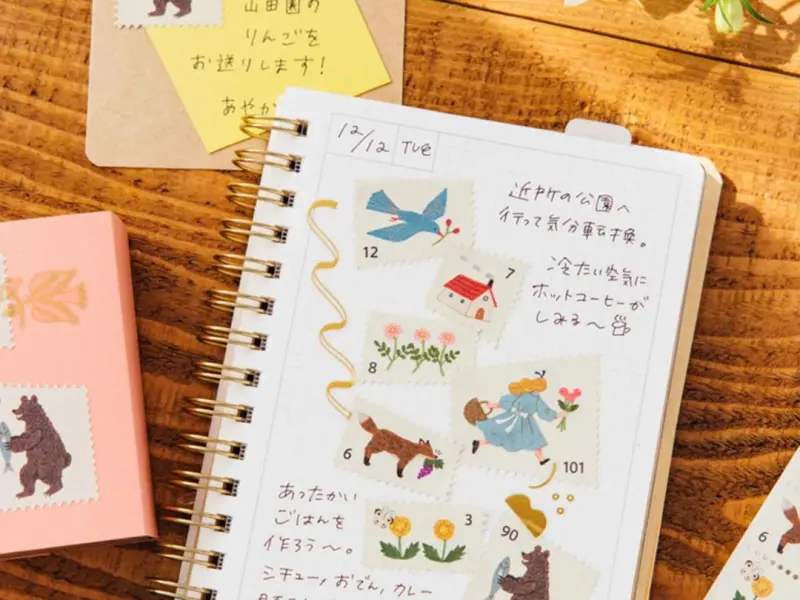 山田園の
りんごを
お送りします!
あやか
12/12 TUE
近所の公園へ
行って気分転換。
冷たい空気に
ホットコーヒーが
しみる〜
12
7
8
6
101
3
90
あったかい
ごはんを
作ろう〜。
シチュー,おでん,カレー
6